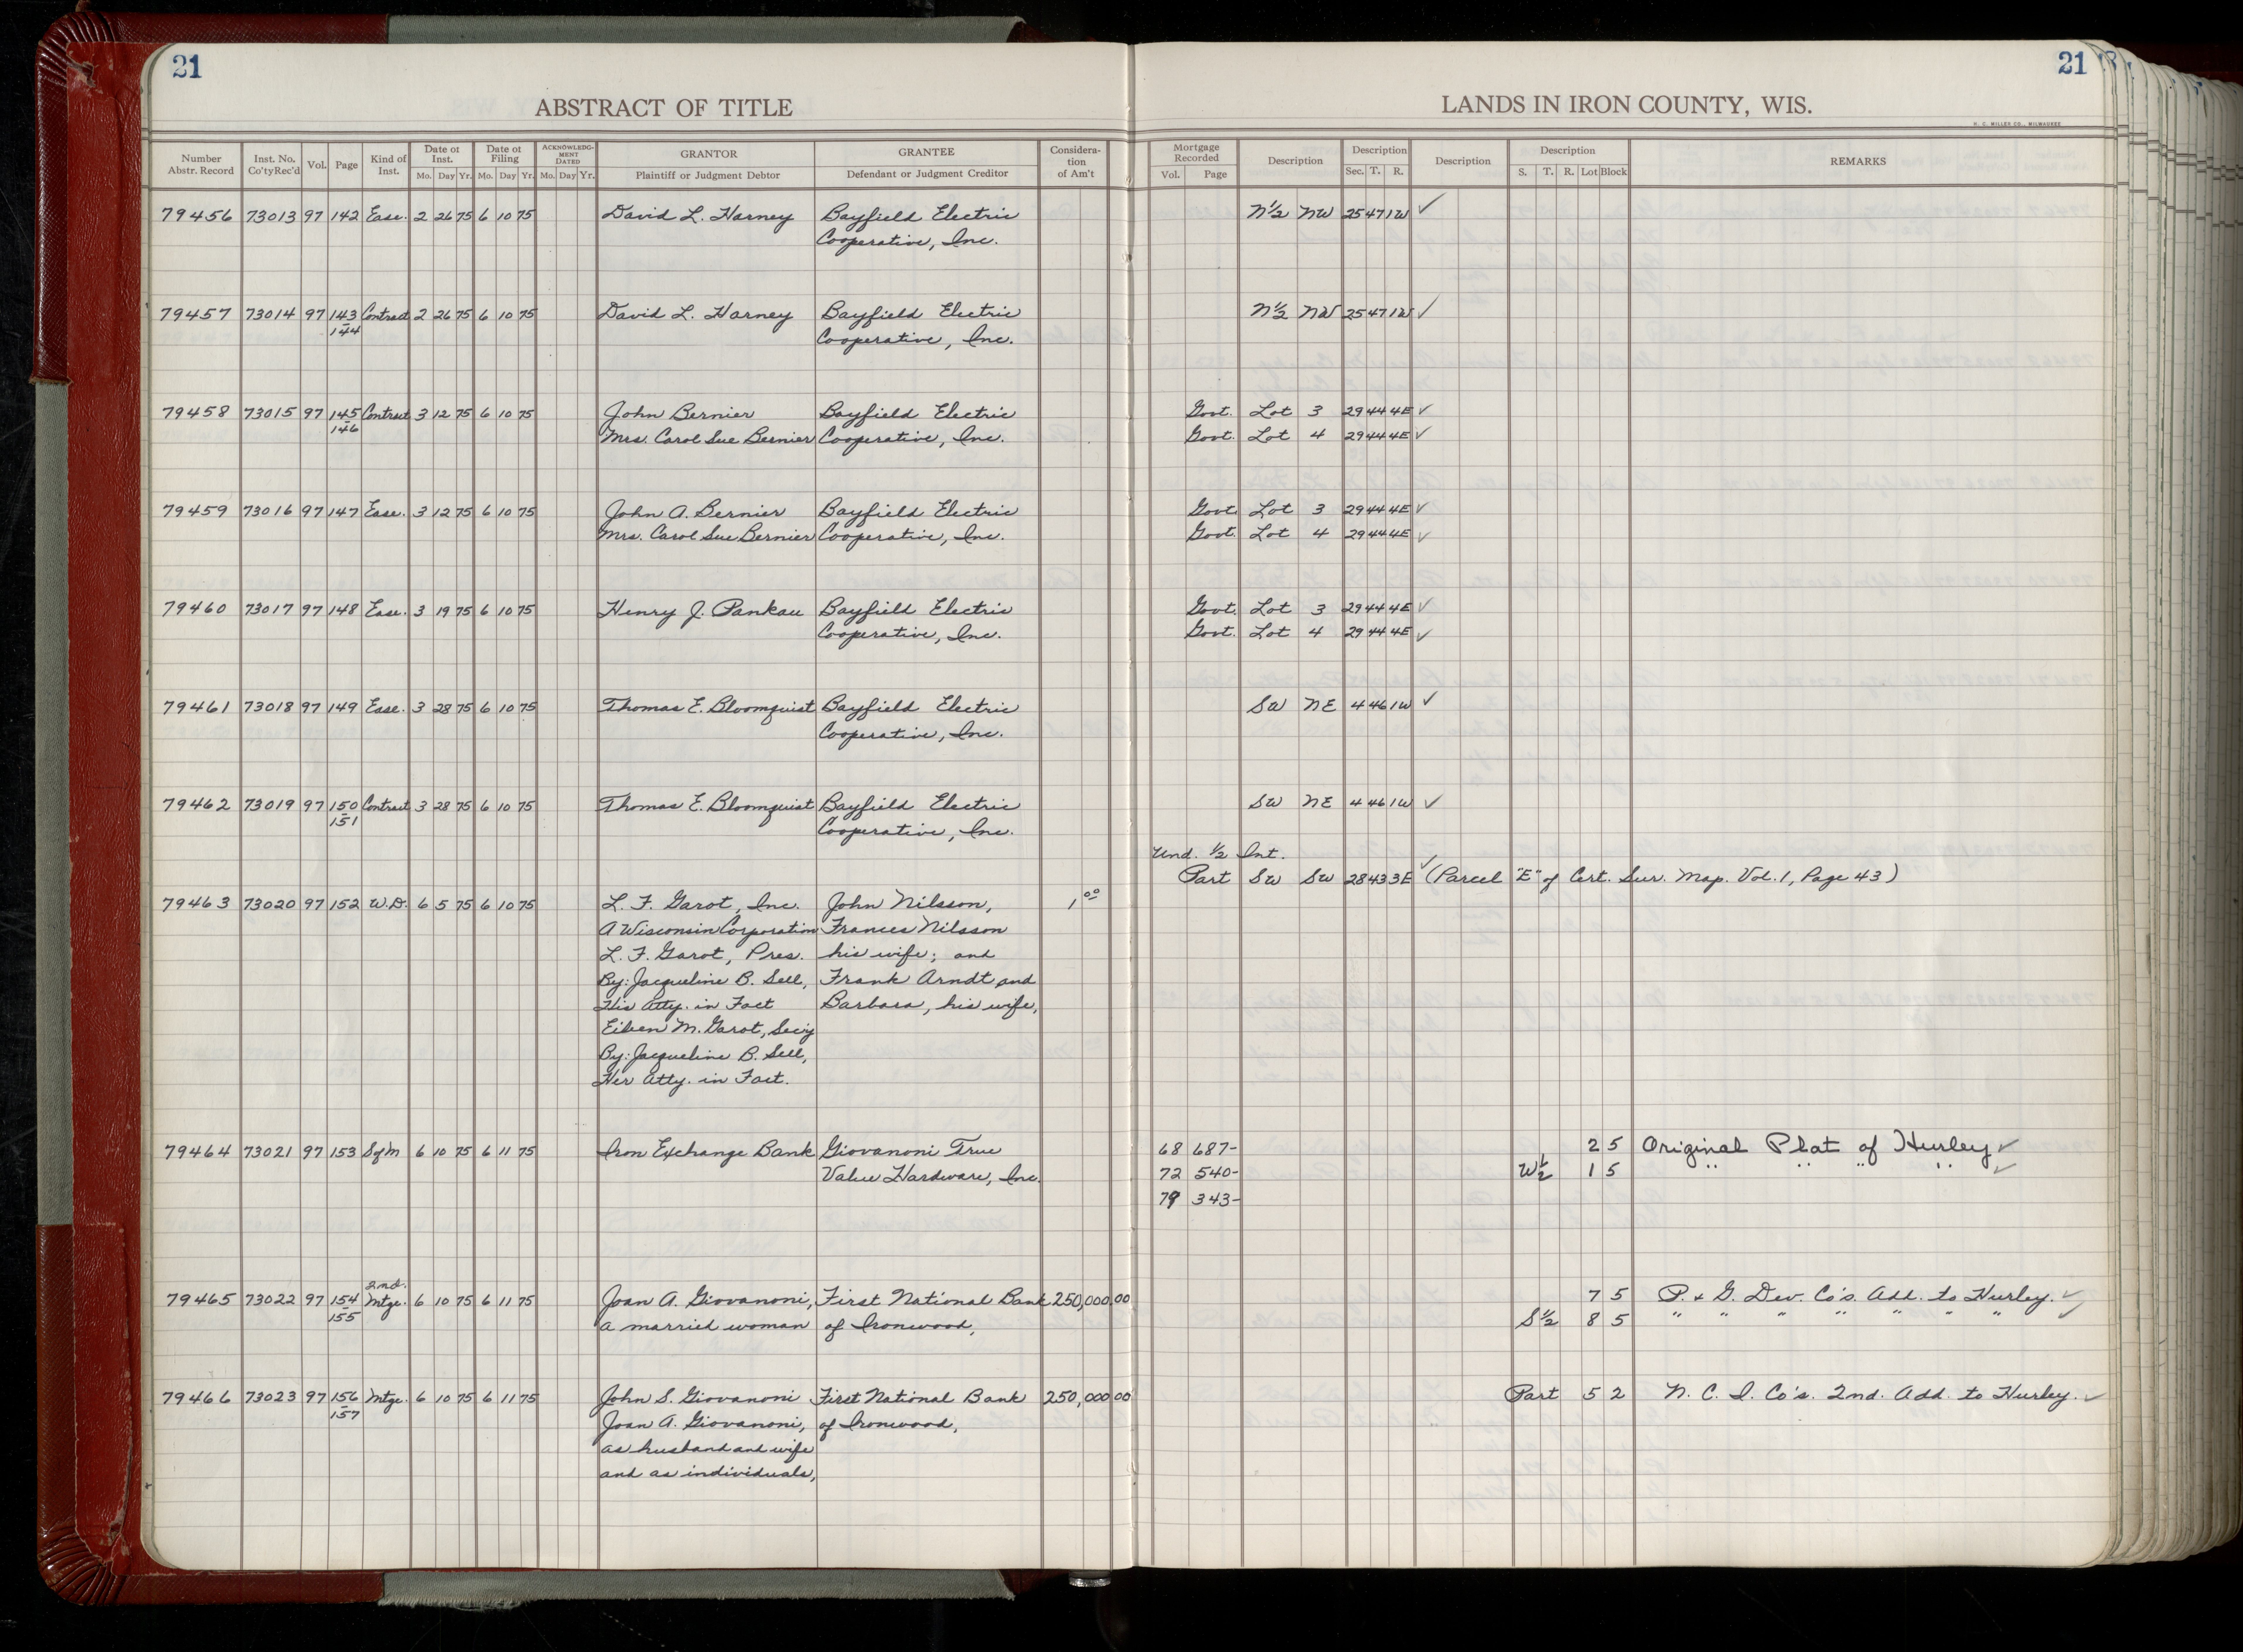 21
21
ABSTRACT OF TITLE
LANDS IN IRON COUNTY, WIS.
H. C. MILLER CO., MILWAUKEE
Number Abstr. Record | Inst. No. Co'ty Rec'd | Vol. | Page | Kind of Inst. | Date of Inst. Mo. Day Yr. | Date of Filing Mo. Day Yr. | ACKNOWLEDGMENT DATED Mo. Day Yr. | GRANTOR Plaintiff or Judgment Debtor | GRANTEE Defendant or Judgment Creditor | Consideration of Am't | Mortgage Recorded Vol. Page | Description | Description Sec. T. R. | Description | Description S. T. R. Lot Block | REMARKS
79456 73013 97 142 Ease. 2 26 75 6 10 75 David L. Harney Bayfield Electric N½ NW 25 47 1W ✓
Cooperative, Inc.
79457 73014 97 143 Contract 2 26 75 6 10 75 David L. Harney Bayfield Electric N½ NW 25 47 1W ✓
144 Cooperative, Inc.
79458 73015 97 145 Contract 3 12 75 6 10 75 John Bernier Bayfield Electric Govt. Lot 3 29 44 4E ✓
146 Mrs. Carol Sue Bernier Cooperative, Inc. Govt. Lot 4 29 44 4E ✓
79459 73016 97 147 Ease. 3 12 75 6 10 75 John A. Bernier Bayfield Electric Govt. Lot 3 29 44 4E ✓
Mrs. Carol Sue Bernier Cooperative, Inc. Govt. Lot 4 29 44 4E ✓
79460 73017 97 148 Ease. 3 19 75 6 10 75 Henry J. Pankau Bayfield Electric Govt. Lot 3 29 44 4E ✓
Cooperative, Inc. Govt. Lot 4 29 44 4E ✓
79461 73018 97 149 Ease. 3 28 75 6 10 75 Thomas E. Bloomquist Bayfield Electric SW NE 4 46 1W ✓
Cooperative, Inc.
79462 73019 97 150 Contract 3 28 75 6 10 75 Thomas E. Bloomquist Bayfield Electric SW NE 4 46 1W ✓
151 Cooperative, Inc.
Und. ½ Int.
Part SW SW 28 43 3E ✓ (Parcel "E" of Cert. Sur. Map. Vol. 1, Page 43)
79463 73020 97 152 W.D. 6 5 75 6 10 75 L. F. Garot, Inc. John Nilsson, 1 00
A Wisconsin Corporation Frances Nilsson
L. F. Garot, Pres. his wife; and
By: Jacqueline B. Sell, Frank Arndt and
His Atty. in Fact Barbara, his wife,
Eileen M. Garot, Sec'y
By: Jacqueline B. Sell,
Her Atty. in Fact.
79464 73021 97 153 S of M 6 10 75 6 11 75 Iron Exchange Bank Giovanoni True 68 687- 2 5 Original Plat of Hurley ✓
Value Hardware, Inc. 72 540- W½ 1 5 " " " " ✓
79 343-
2nd.
79465 73022 97 154 Mtge. 6 10 75 6 11 75 Joan A. Giovanoni, First National Bank 250,000.00 7 5 P. & G. Dev. Co's. Add. to Hurley. ✓
155 a married woman of Ironwood, S½ 8 5 " " " " " " " ✓
79466 73023 97 156 Mtge. 6 10 75 6 11 75 John S. Giovanoni First National Bank 250,000 00 Part 5 2 N. C. I. Co's. 2nd. Add. to Hurley. ✓
157 Joan A. Giovanoni, of Ironwood,
as husband and wife
and as individuals,